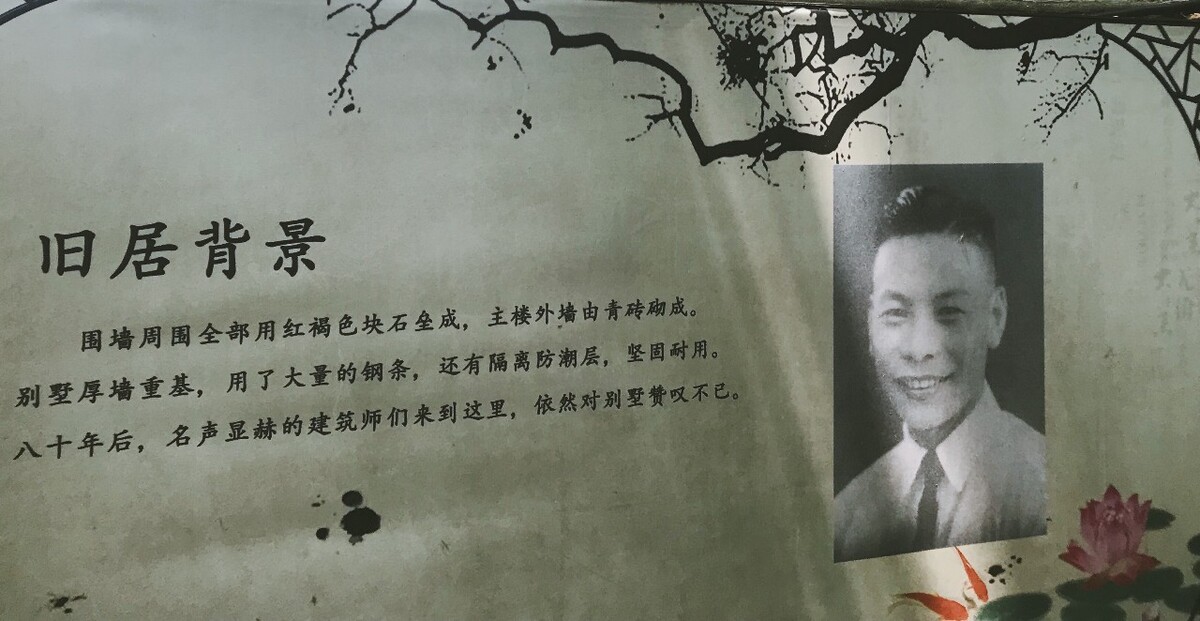 旧居背景
围墙周围全部用红褐色块石垒成，主楼外墙由青砖砌成。
别墅厚墙重基，用了大量的钢条，还有隔离防潮层，坚固耐用。
八十年后，名声显赫的建筑师们来到这里，依然对别墅赞叹不已。